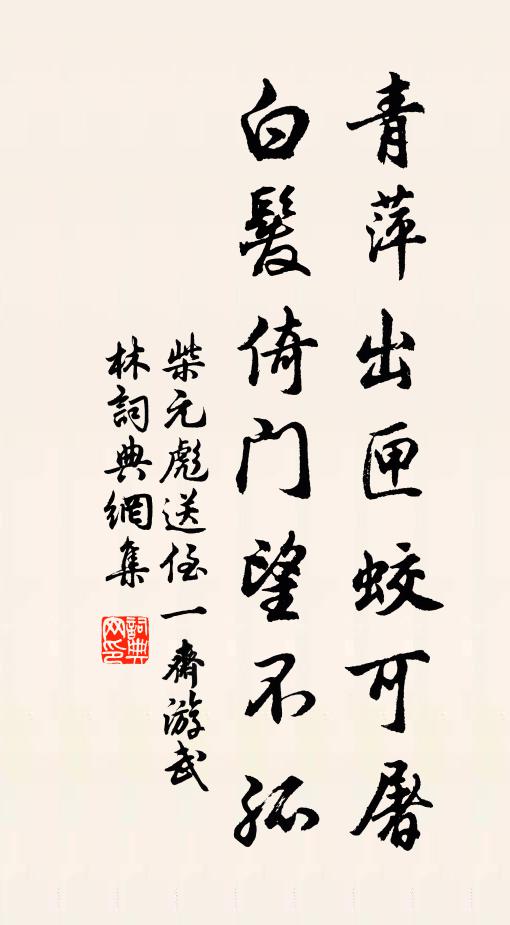 青萍出匣蛟可屠
白髮倚門望不孤
柴元彪送侄一齋游武
林詞典網集
詞典網印